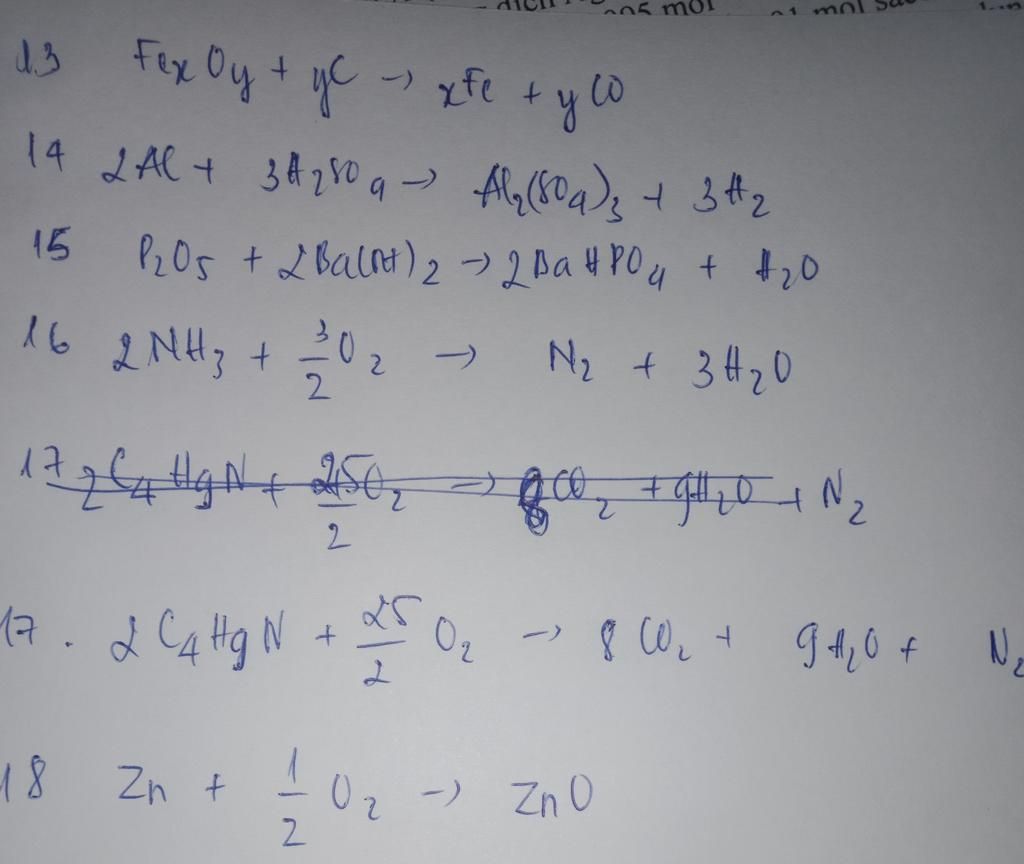 005 mol
13 FexOy + yC → xFe + yCO
14 2Al + 3H₂SO₄ → Al₂(SO₄)₃ + 3H₂
15 P₂O₅ + 2Ba(OH)₂ → 2BaHPO₄ + H₂O
16 2NH₃ + 3/2 O₂ → N₂ + 3H₂O
17 2C₄H9N + 25/2 O₂ → 8CO₂ + 9H₂O + N₂
17. 2C₄H9N + 25/2 O₂ → 8CO₂ + 9H₂O + N₂
18 Zn + 1/2 O₂ → ZnO